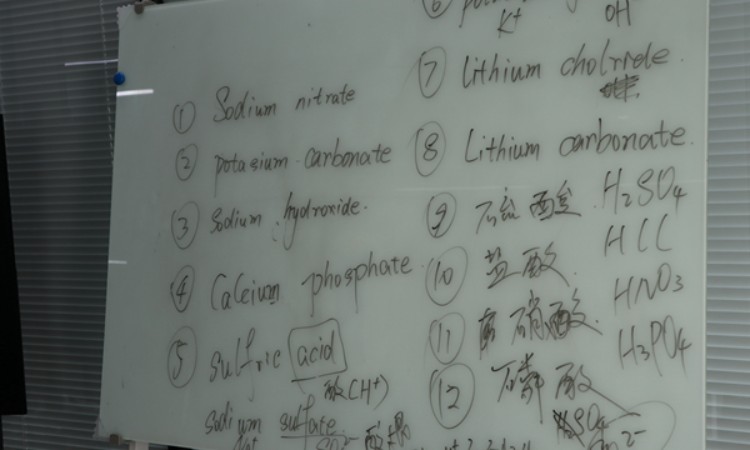 ① Sodium nitrate
② potasium carbonate
③ Sodium hydroxide.
④ Calcium phosphate
⑤ sulfric acid
酸(H+)
sodium sulfate
Na+ SO₄²⁻ 酸根
⑥
K+ OH
⑦ Lithium cholride.
⑧ Lithium carbonate.
⑨ 酸 H₂SO₄
⑩ 盐酸 HCl
⑪ 硝酸. HNO₃
⑫ 磷酸 H₃PO₄
SO₄